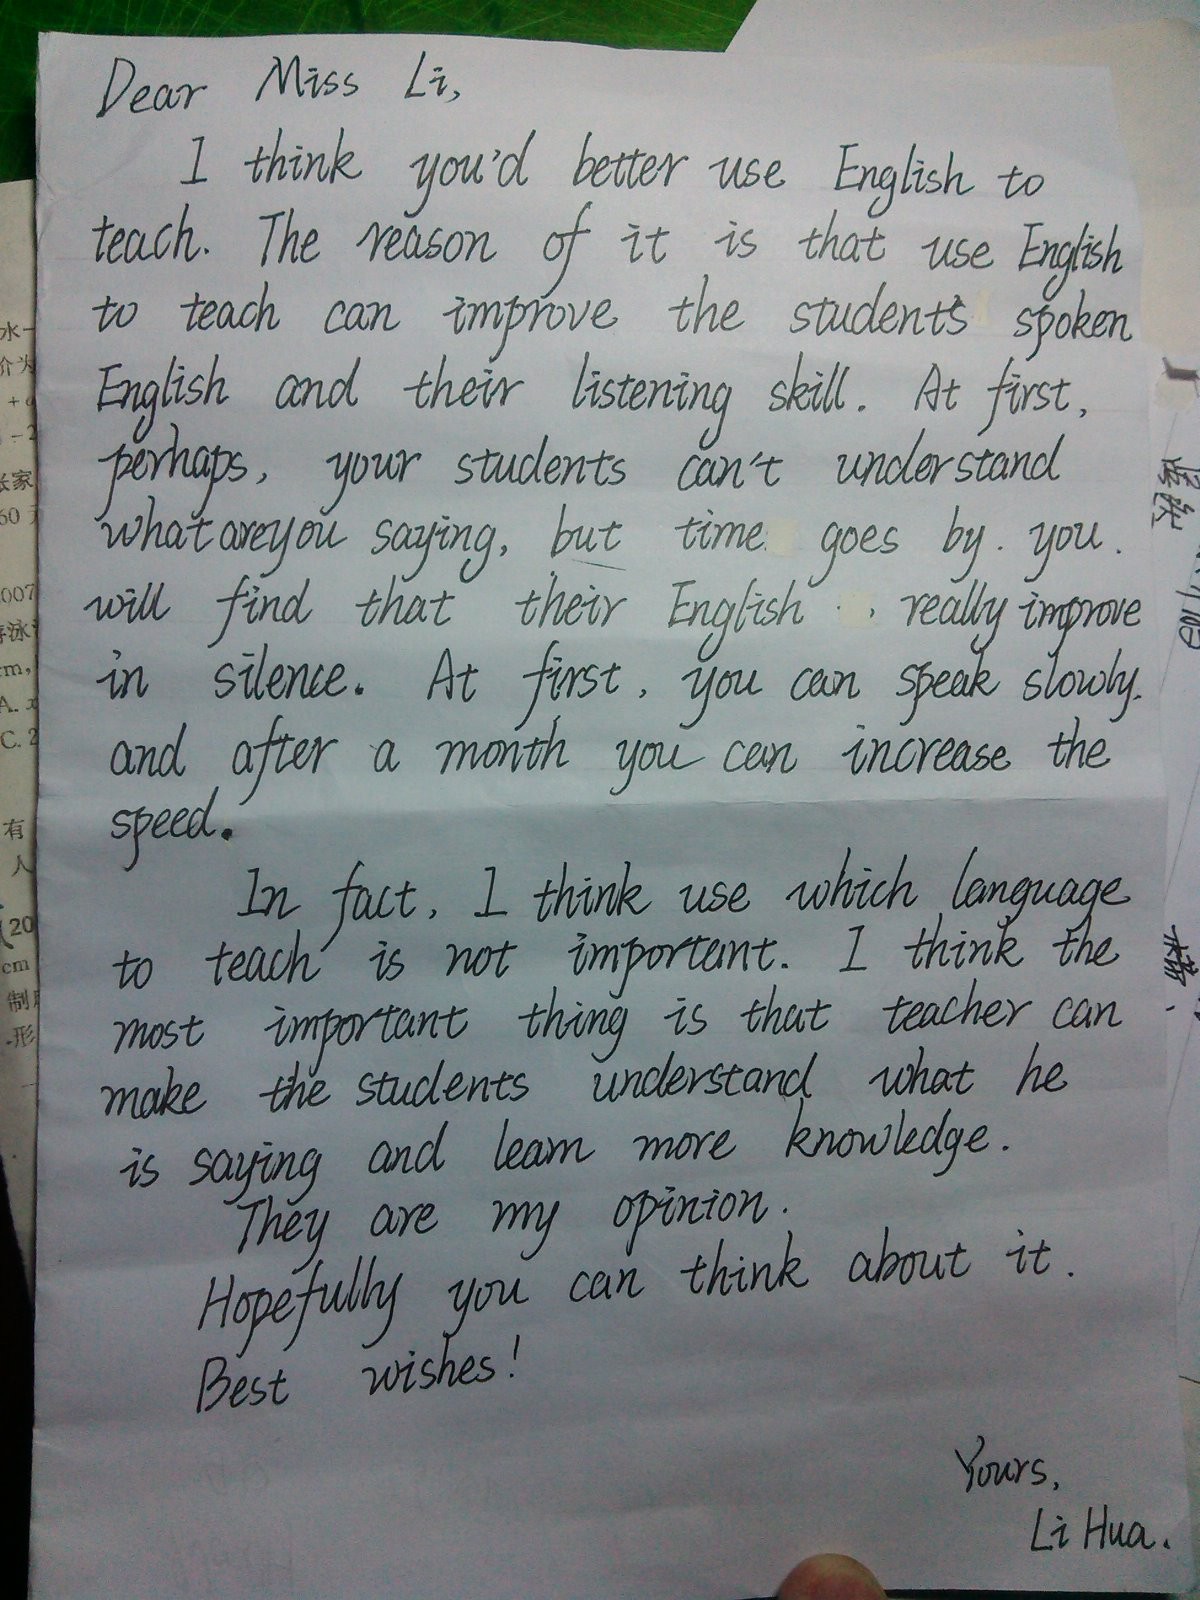 Dear Miss Li,
I think you'd better use English to
teach. The reason of it is that use English
to teach can improve the student's spoken
English and their listening skill. At first,
perhaps, your students can't understand
what are you saying, but time goes by. you
will find that their English really improve
in silence. At first, you can speak slowly.
and after a month you can increase the
speed.
In fact, I think use which language
to teach is not important. I think the
most important thing is that teacher can
make the students understand what he
is saying and learn more knowledge.
They are my opinion.
Hopefully you can think about it.
Best wishes!
Yours,
Li Hua.
水一
价为
张家
60
2007
cm,
A.
C. 2
有
人
20
cm
制
形